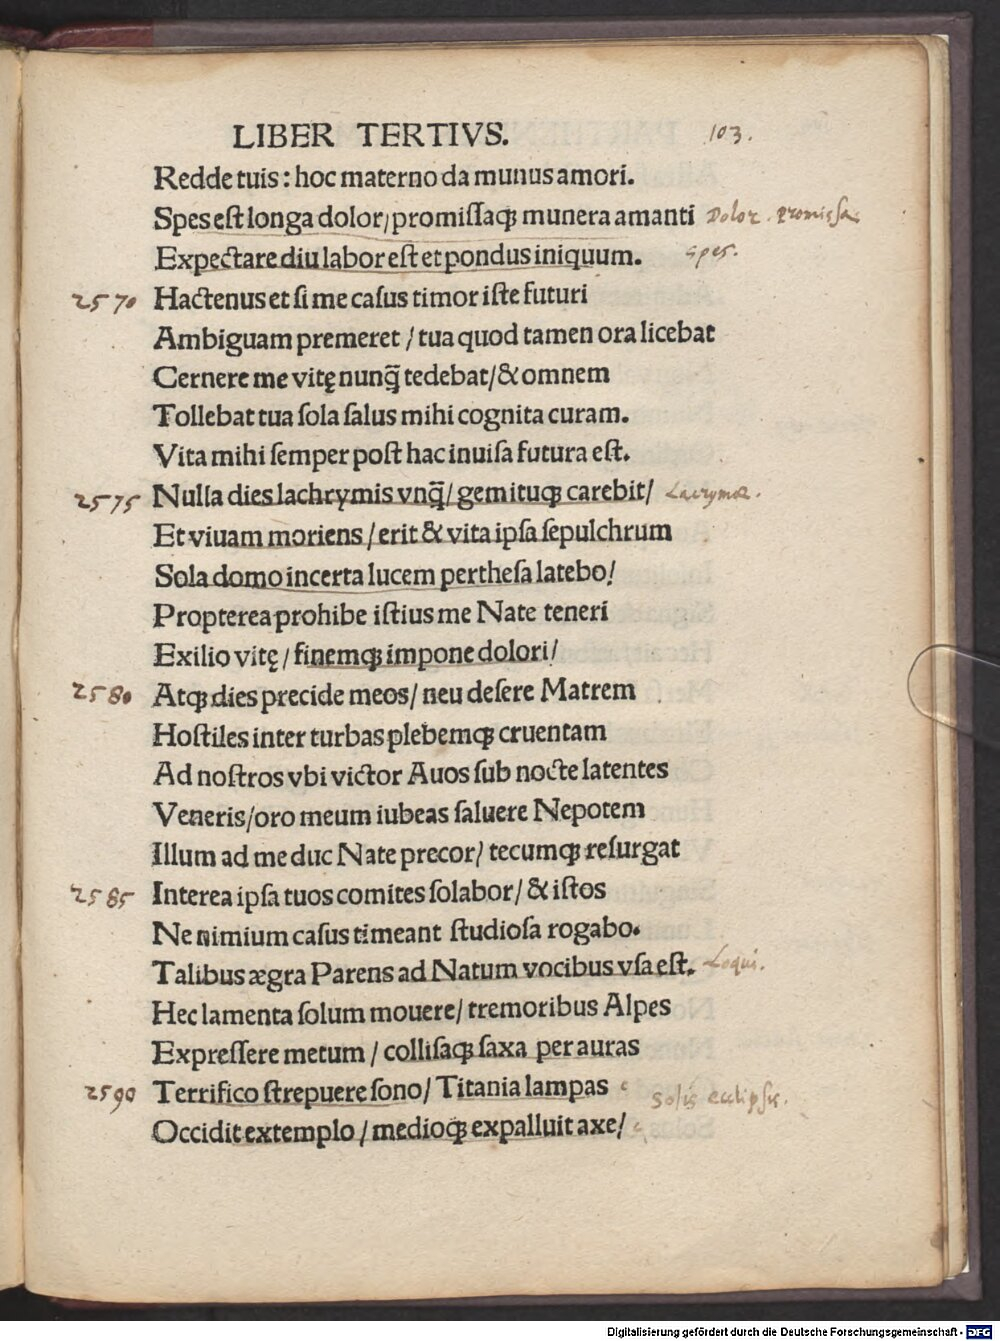 LIBER TERTIVS. 103.
Redde tuis: hoc materno da munus amori.
Spes est longa dolor/promiſſaqꝫ munera amanti Dolor. Promissa
Expectare diu labor eſt et pondus iniquum. spes.
2570 Hactenus et ſi me caſus timor iſte futuri
Ambiguam premeret / tua quod tamen ora licebat
Cernere me vitę nunq̃ tedebat/& omnem
Tollebat tua ſola ſalus mihi cognita curam.
Vita mihi ſemper poſt hac inuiſa futura eſt.
2575 Nulla dies lachrymis vnq̃/ gemituqꝫ carebit/ Lacrymæ.
Et viuam moriens / erit & vita ipſa ſepulchrum
Sola domo incerta lucem pertheſa latebo/
Propterea prohibe iſtius me Nate teneri
Exilio vitę / finemqꝫ impone dolori/
2580 Atqꝫ dies precide meos/ neu deſere Matrem
Hoſtiles inter turbas plebemqꝫ cruentam
Ad noſtros vbi victor Auos ſub nocte latentes
Veneris/oro meum iubeas ſaluere Nepotem
Illum ad me duc Nate precor/ tecumqꝫ reſurgat
2585 Interea ipſa tuos comites ſolabor/ & iſtos
Ne nimium caſus timeant ſtudioſa rogabo.
Talibus ægra Parens ad Natum vocibus vſa eſt. Loqui.
Hec lamenta ſolum mouere/ tremoribus Alpes
Expreſſere metum / colliſaqꝫ ſaxa per auras
2590 Terrifico ſtrepuere ſono/ Titania lampas Solis eclipsis.
Occidit extemplo / medioqꝫ expalluit axe/
Digitalisierung gefördert durch die Deutsche Forschungsgemeinschaft - DFG